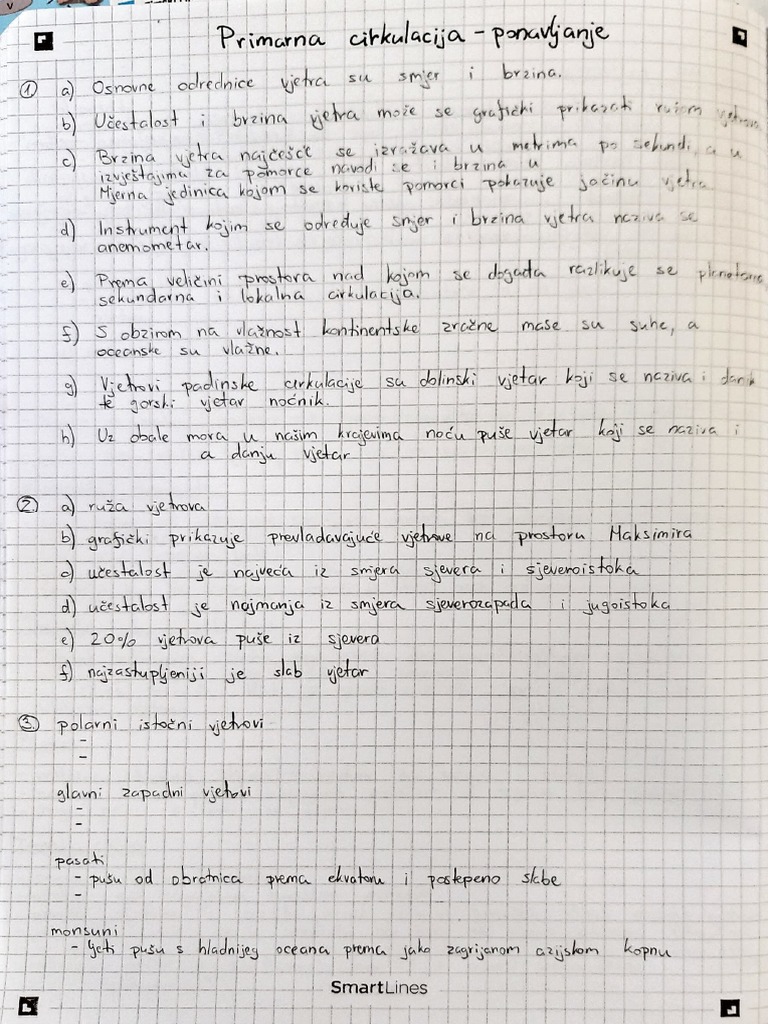 Primarna cirkulacija - ponavljanje
① a) Osnovne odrednice vjetra su smjer i brzina.
b) Učestalost i brzina vjetra može se grafički prikazati ružom vjetrova
c) Brzina vjetra najčešće se izražava u metrima po sekundi, a u
izvještajima za pomorce navodi se i brzina u
Mjerna jedinica kojom se koriste pomorci pokazuje jačinu vjetra
d) Instrument kojim se određuje smjer i brzina vjetra naziva se
anemometar.
e) Prema veličini prostora nad kojom se događa razlikuje se planetarna
sekundarna i lokalna cirkulacija.
f) S obzirom na vlažnost kontinentske zračne mase su suhe, a
oceanske su vlažne.
g) Vjetrovi padinske cirkulacije su dolinski vjetar koji se naziva i danik
te gorski vjetar noćnik.
h) Uz obale mora u našim krajevima noću puše vjetar koji se naziva i
a danju vjetar
② a) ruža vjetrova
b) grafički prikazuje prevladavajuće vjetrove na prostoru Maksimira
c) učestalost je najveća iz smjera sjevera i sjeveroistoka
d) učestalost je najmanja iz smjera sjeverozapada i jugoistoka
e) 20% vjetrova puše iz sjevera
f) najzastupljeniji je slab vjetar
③ polarni istočni vjetrovi
-
-
glavni zapadni vjetovi
-
-
pasati
- pušu od obratnica prema ekvatoru i postepeno slabe
-
monsuni
- ljeti pušu s hladnijeg oceana prema jako zagrijanom azijskom kopnu
SmartLines